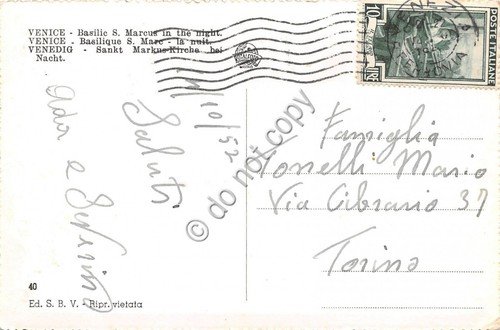 VENICE - Basilic S. Marcus in the night.
VENICE - Basilique S. Marc - la nuit.
VENEDIG - Sankt Markus-Kirche bei
Nacht.
10
LIRE
POSTE ITALIANE
11/10/52
Saluti
Ada e
Famiglia
Tonelli Mario
Via Cibrario 37
Torino
©do not copy
40
Ed. S. B. V. - Ripr. vietata